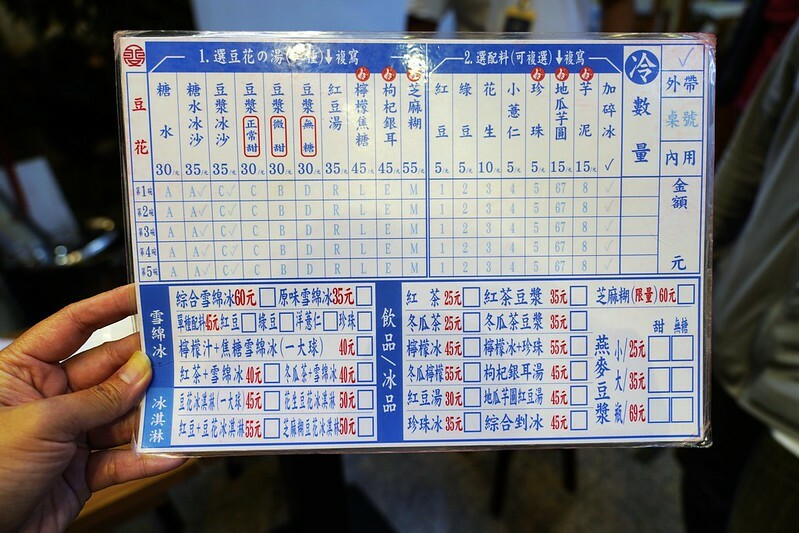 1.選豆花の湯(種)↓複寫
2.選配料(可複選)↓複寫
冷
✓
豆花
糖水 30/元
糖水冰沙 35/元
豆漿冰沙 35/元
豆漿 正常甜 30/元
豆漿 微甜 30/元
豆漿 無糖 30/元
紅豆湯 35/元
檸檬焦糖 45/元
枸杞銀耳 45/元
芝麻糊 55/元
紅豆 5/元
綠豆 5/元
花生 10/元
小薏仁 5/元
珍珠 5/元
地瓜芋圓 15/元
芋泥 15/元
加碎冰 ✓
數量
外帶
桌號
內用
金額
元
第1碗 A A✓ C✓ C B D R L E M 1 2 3 4 5 67 8 ✓
第2碗 A A✓ C✓ C B D R L E M 1 2 3 4 5 67 8 ✓
第3碗 A A✓ C✓ C B D R L E M 1 2 3 4 5 67 8 ✓
第4碗 A A✓ C✓ C B D R L E M 1 2 3 4 5 67 8 ✓
第5碗 A A✓ C✓ C B D R L E M 1 2 3 4 5 67 8 ✓
雪綿冰
綜合雪綿冰60元 原味雪綿冰35元
單種配料45元 紅豆 綠豆 洋薏仁 珍珠
檸檬汁+焦糖雪綿冰(一大球) 40元
紅茶+雪綿冰40元 冬瓜茶+雪綿冰40元
冰淇淋
豆花冰淇淋(一大球)45元 花生豆花冰淇淋50元
紅豆+豆花冰淇淋55元 芝麻糊豆花冰淇淋50元
飲品/冰品
紅茶25元 紅茶豆漿35元 芝麻糊(限量)60元
冬瓜茶25元 冬瓜茶豆漿35元
檸檬冰45元 檸檬冰+珍珠55元
冬瓜檸檬55元 枸杞銀耳湯45元
紅豆湯30元 地瓜芋圓紅豆湯45元
珍珠冰35元 綜合剉冰45元
甜 無糖
燕麥豆漿
小/25元
大/35元
瓶/69元